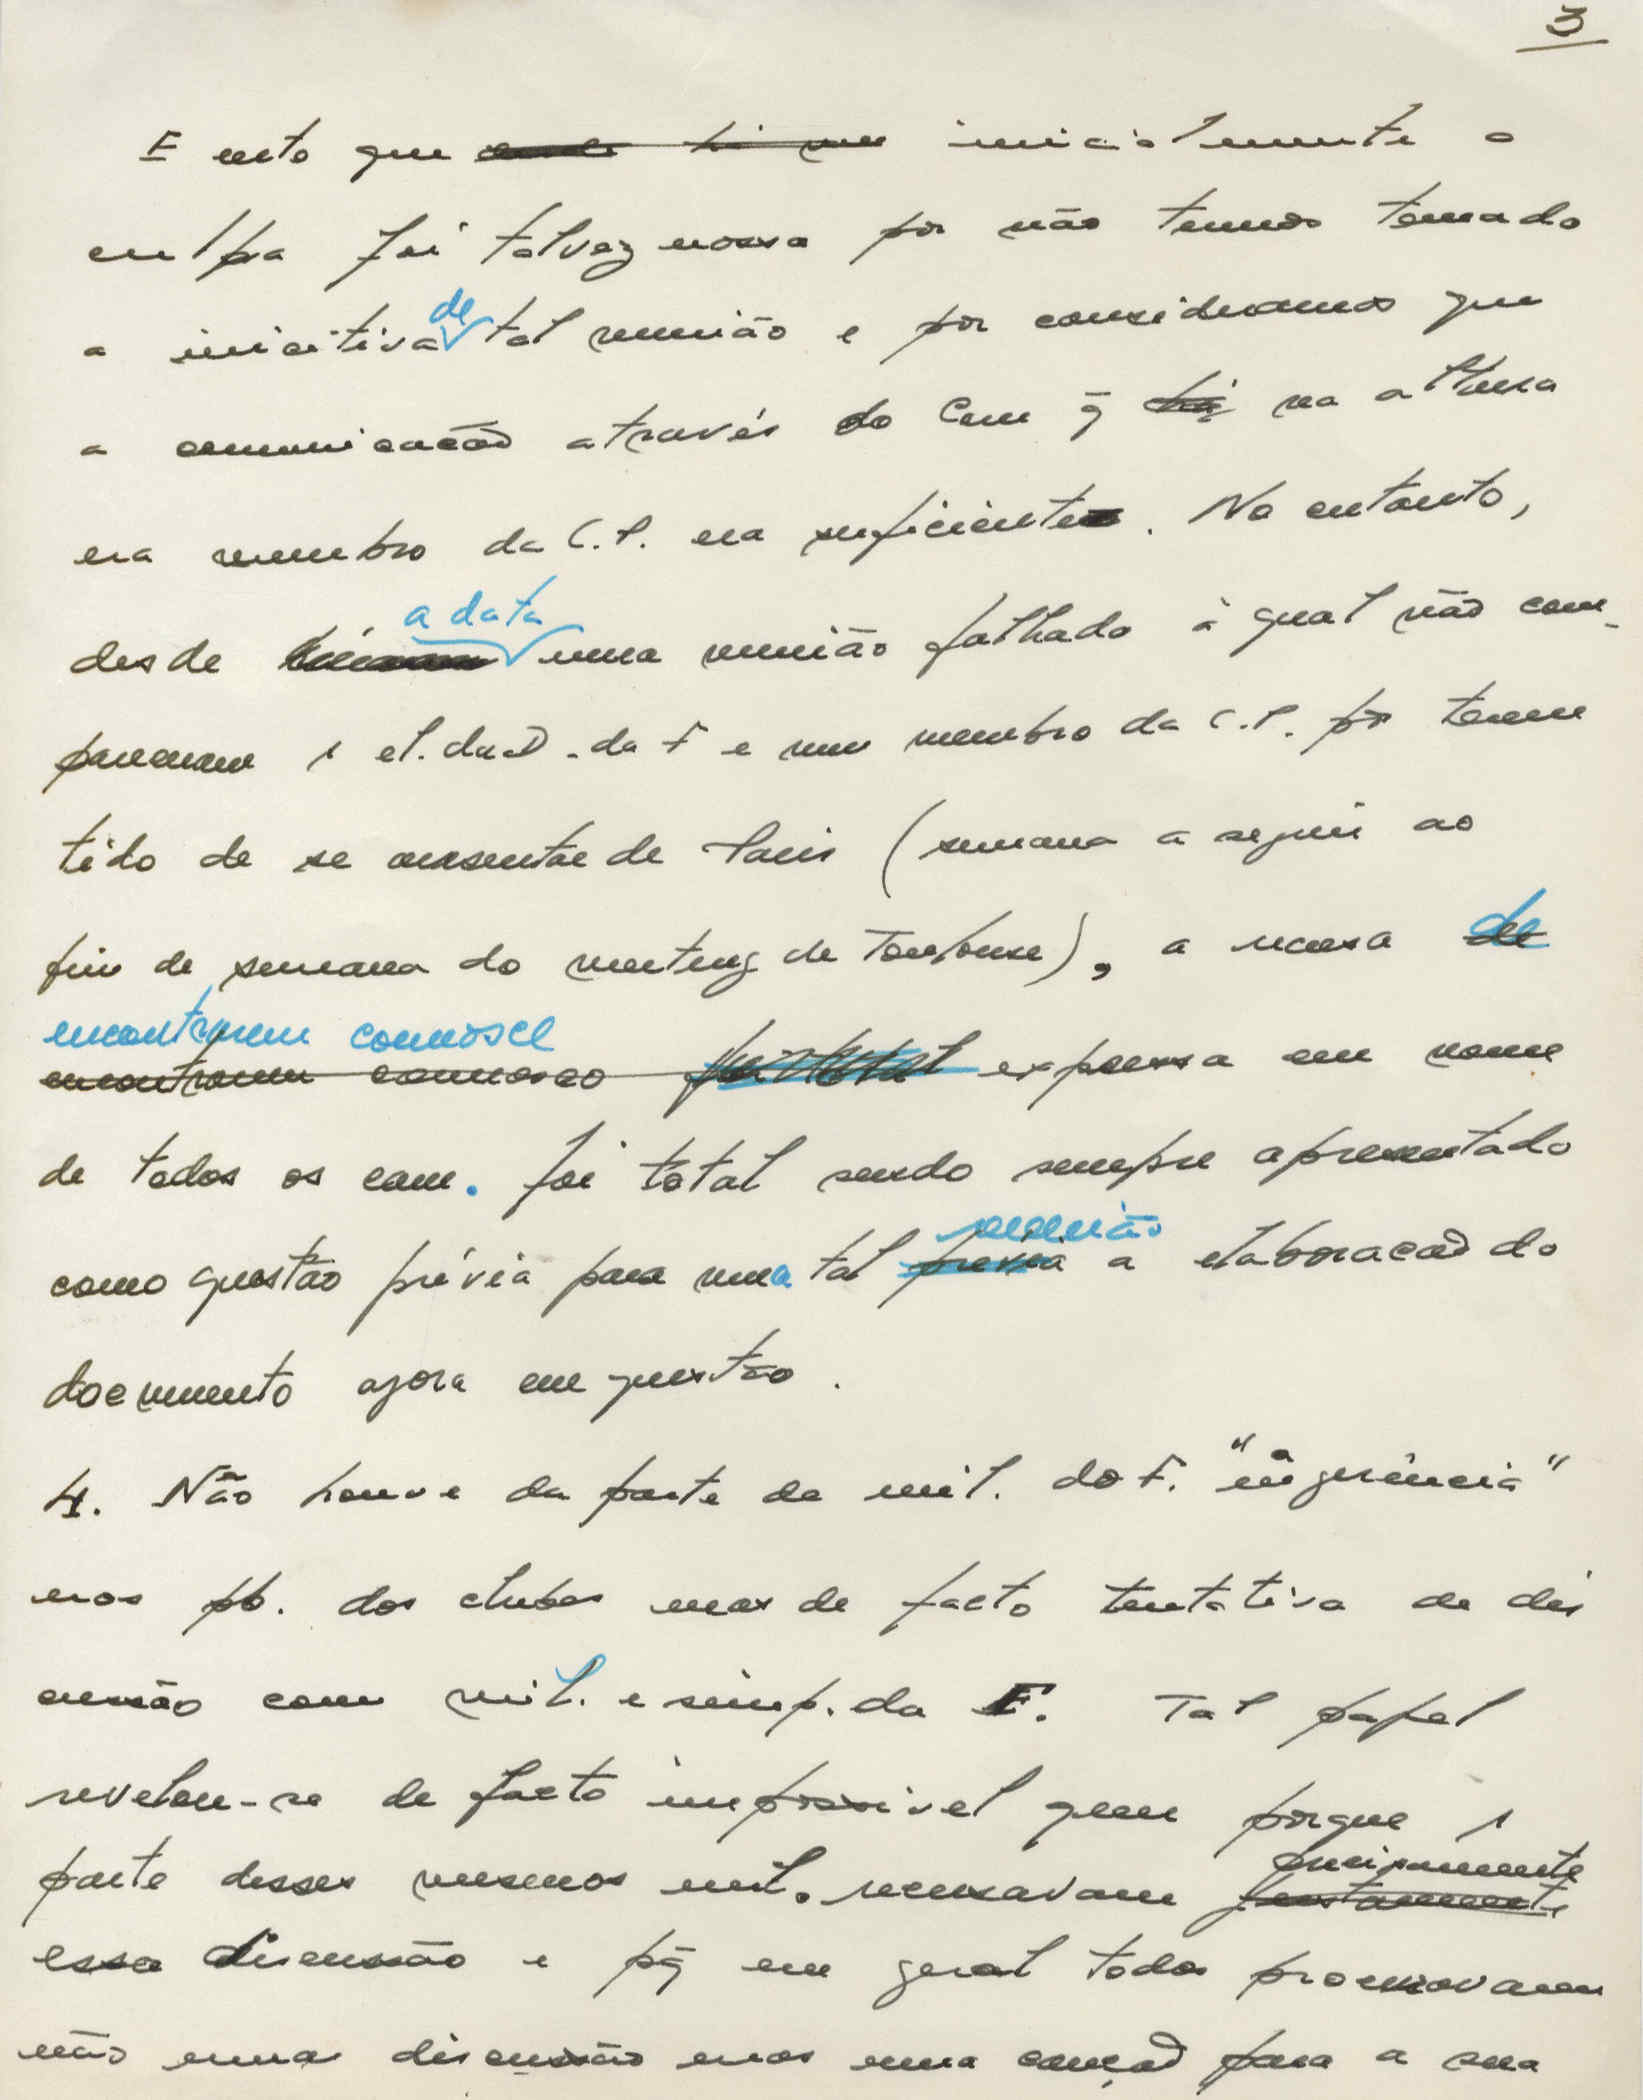 3
E certo que inicialmente a
culpa foi talvez nossa por não termos tomado
a iniciativa de tal reunião e por considerarmos que
a comunicação através do Cam q̄ na altura
era membro da C.P. era suficiente. No entanto,
desde a data uma reunião falhada à qual não com-
pareceram 1 el. da D. da F e um membro da C.P. por terem
tido de se ausentar de Paris (semana a seguir ao
fim de semana do meeting de Toulouse), a recusa de
encontrarem connosco
encontrarem connosco expressa em nome
de todos os cam. foi total sendo sempre apresentado
reunião
como questão prévia para uma tal a elaboração do
documento agora em questão.
4. Não houve da parte de mil. do F. "ingerência"
nos pb. dos clubes mas de facto tentativa de dis
cussão com mil. e simp. da F. Tal papel
revelou-se de facto impossível quer porque 1
precisamente
parte desses mesmos mil. recusavam justamente
essa discussão e pq̄ em geral todos procuravam
não uma discussão mas uma caução para a sua